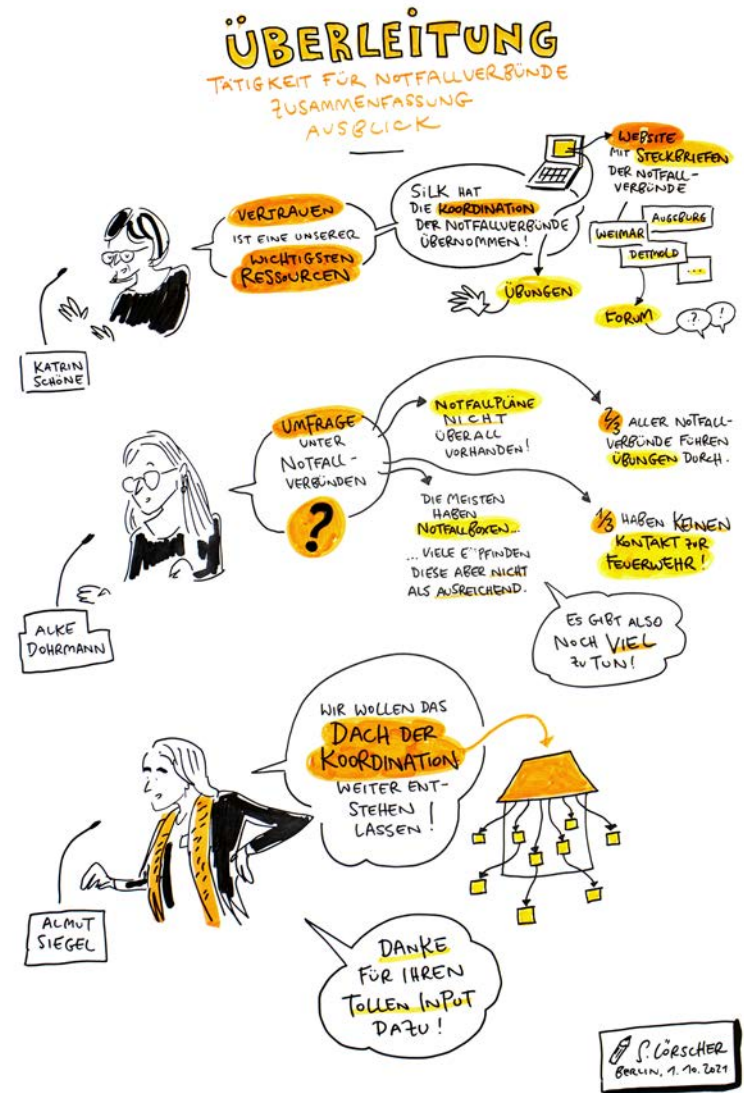 ÜBERLEITUNG
TÄTIGKEIT FÜR NOTFALLVERBÜNDE
ZUSAMMENFASSUNG
AUSBLICK
KATRIN
SCHÖNE
VERTRAUEN
IST EINE UNSERER
WICHTIGSTEN
RESSOURCEN
SiLK HAT
DIE KOORDINATION
DER NOTFALLVERBÜNDE
ÜBERNOMMEN!
ÜBUNGEN
WEBSITE
MIT STECKBRIEFEN
DER NOTFALL-
VERBÜNDE
AUGSBURG
WEIMAR
DETMOLD
...
FORUM
?
!
ALKE
DOHRMANN
UMFRAGE
UNTER
NOTFALL-
VERBÜNDEN
?
NOTFALLPLÄNE
NICHT
ÜBERALL
VORHANDEN!
2/3 ALLER NOTFALL-
VERBÜNDE FÜHREN
ÜBUNGEN DURCH.
DIE MEISTEN
HABEN
NOTFALLBOXEN...
... VIELE
DIESE ABER NICHT
ALS AUSREICHEND.
1/3 HABEN KEINEN
KONTAKT ZUR
FEUERWEHR!
ES GIBT ALSO
NOCH VIEL
ZU TUN!
ALMUT
SIEGEL
WIR WOLLEN DAS
DACH DER
KOORDINATION
WEITER ENT-
STEHEN
LASSEN!
DANKE
FÜR IHREN
TOLLEN INPUT
DAZU!
S. LÖRSCHER
BERLIN, 1.10.2021